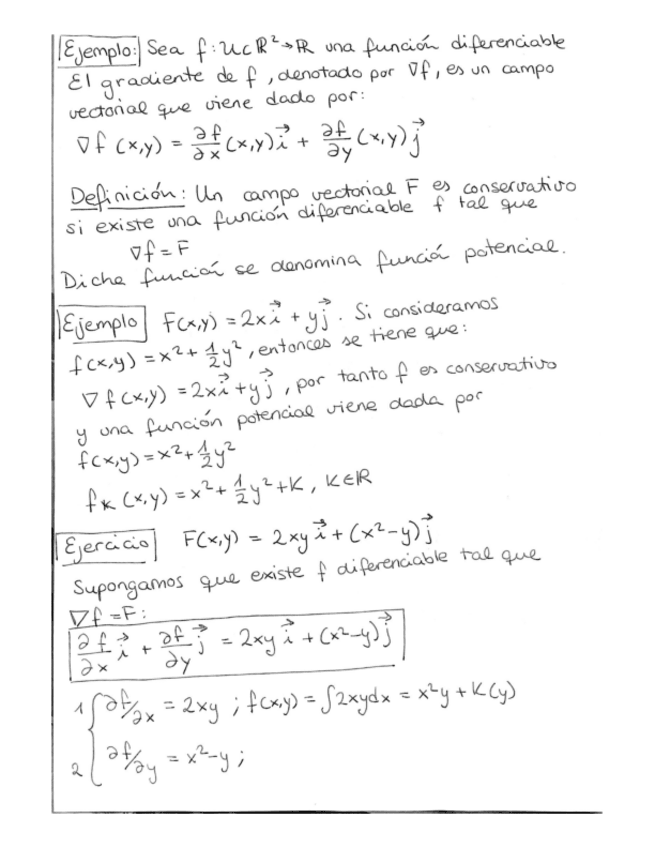 Ejemplo: Sea f: U⊂ℝ²→ℝ una función diferenciable
El gradiente de f, denotado por ∇f, es un campo
vectorial que viene dado por:
∇f (x,y) = ∂f/∂x (x,y) i⃗ + ∂f/∂y (x,y) j⃗
Definición: Un campo vectorial F es conservativo
si existe una función diferenciable f tal que
∇f = F
Dicha función se denomina función potencial.
Ejemplo F(x,y) = 2x i⃗ + y j⃗. Si consideramos
f(x,y) = x² + 1/2 y², entonces se tiene que:
∇f(x,y) = 2x i⃗ + y j⃗, por tanto f es conservativo
y una función potencial viene dada por
f(x,y) = x² + 1/2 y²
f_K (x,y) = x² + 1/2 y² + K, K∈ℝ
Ejercicio F(x,y) = 2xy i⃗ + (x²-y) j⃗
Supongamos que existe f diferenciable tal que
∇f = F:
∂f/∂x i⃗ + ∂f/∂y j⃗ = 2xy i⃗ + (x²-y) j⃗
1 { ∂f/∂x = 2xy ; f(x,y) = ∫2xydx = x²y + K(y)
2 { ∂f/∂y = x²-y ;